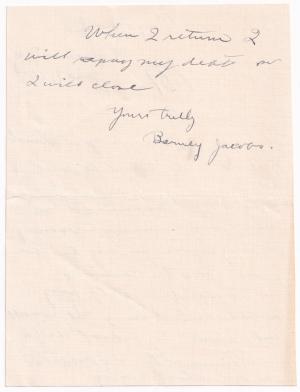 When I return I
will repay my debt so
I will close
Yours trully
Barney Jacobs.